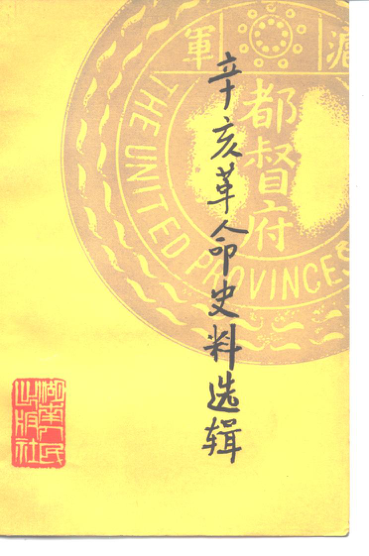 滬軍
都督府
THE UNITED PROVINCES
辛亥革命史料选辑
湖南人民
出版社